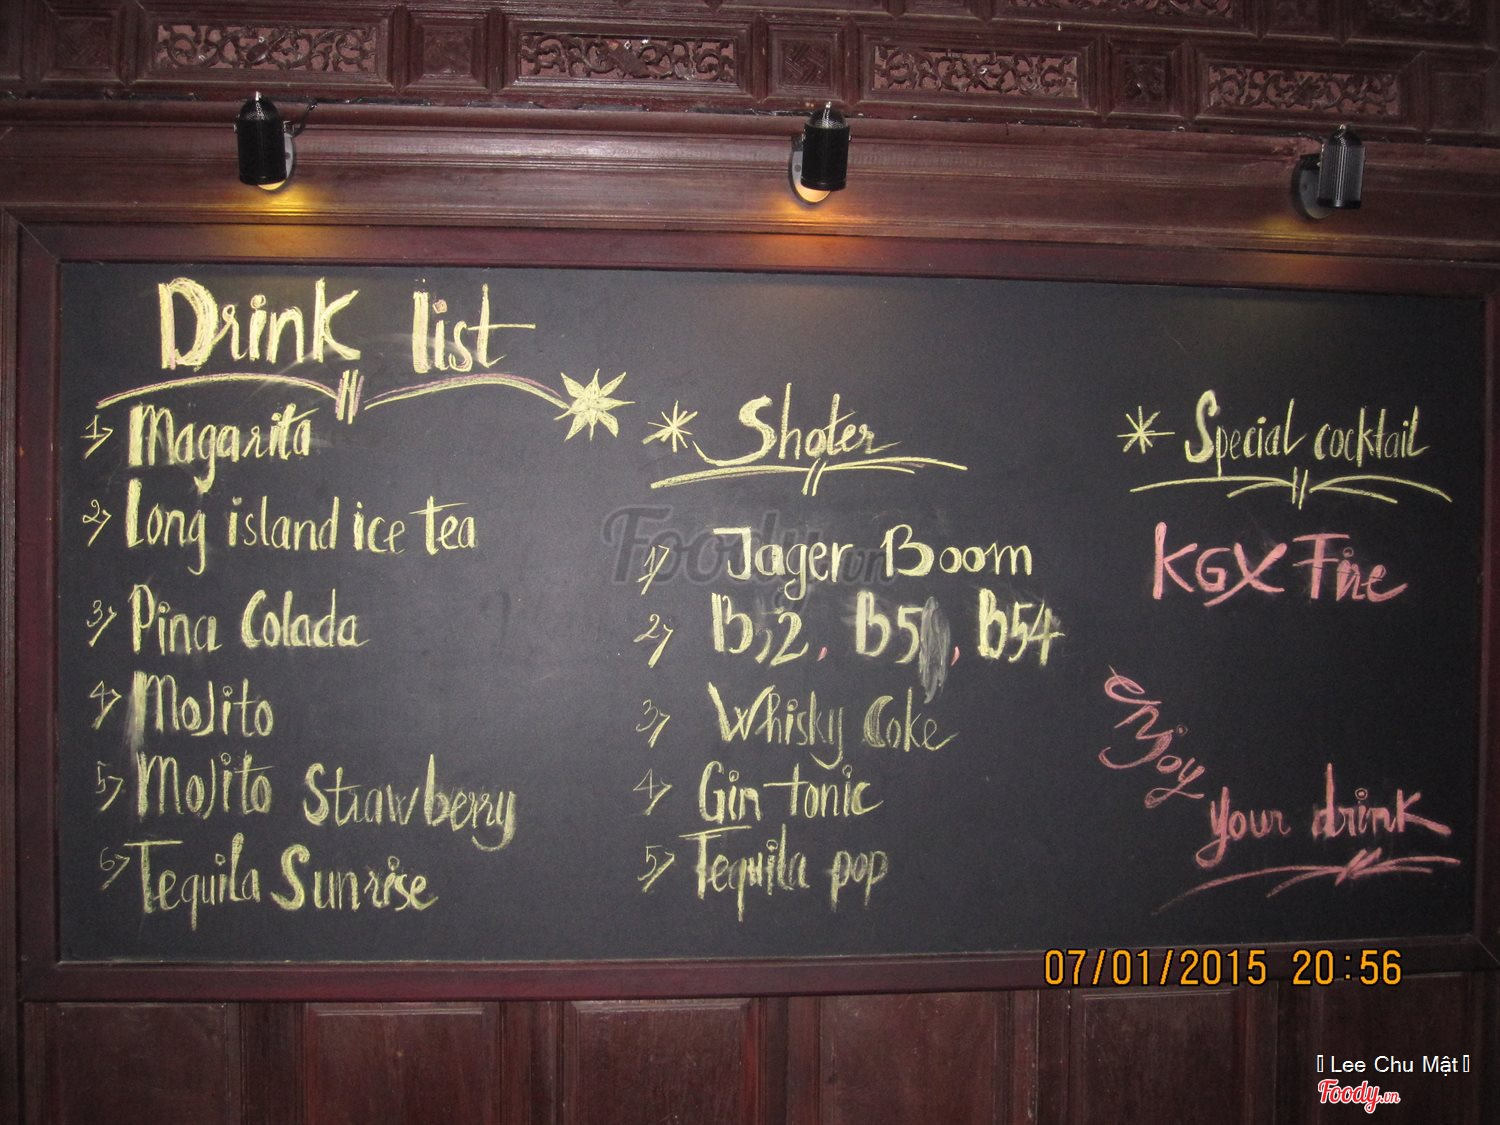 Drink list
1) Magarita
2) Long island ice tea
3) Pina Colada
4) Mojito
5) Mojito Strawberry
6) Tequila Sunrise
Shoter
1) Jager Boom
2) B52, B5, B54
3) Whisky Coke
4) Gin tonic
5) Tequila pop
Special cocktail
KGX
enjoy
your drink
Foody.vn
07/01/2015 20:56
Lee Chu Mật
Foody.vn